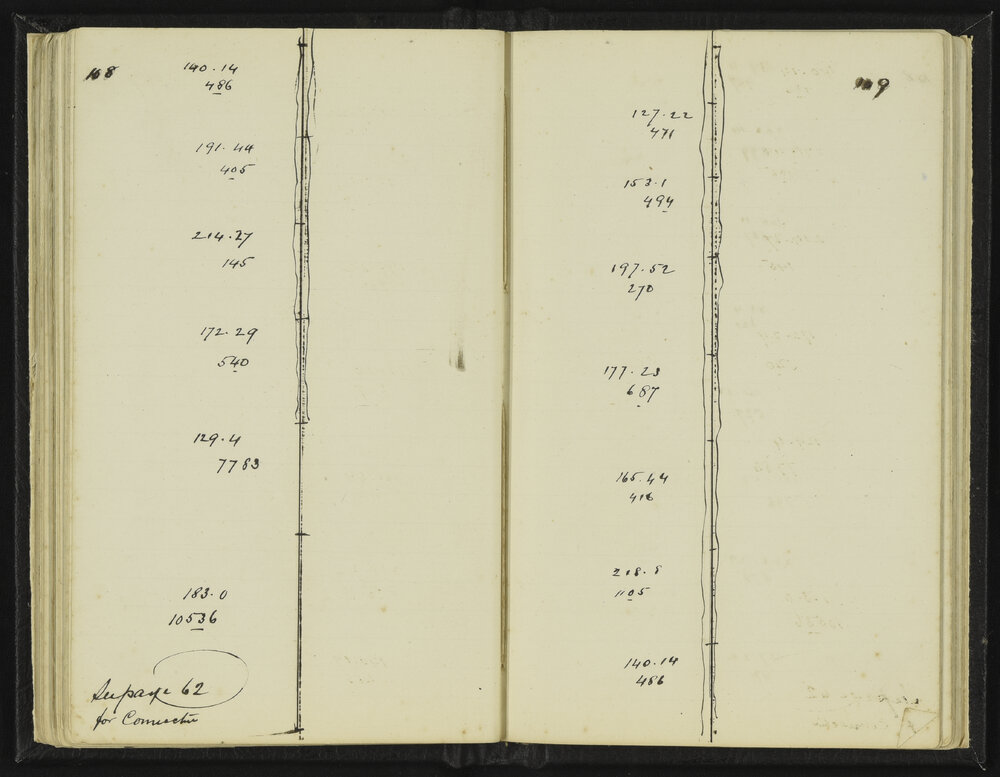 108
140.14
486
191.44
405
214.27
145
172.29
540
129.4
7783
183.0
10536
See page 62
for Connectn
109
127.22
471
153.1
494
197.52
270
177.23
687
165.44
416
218.8
1105
140.14
486